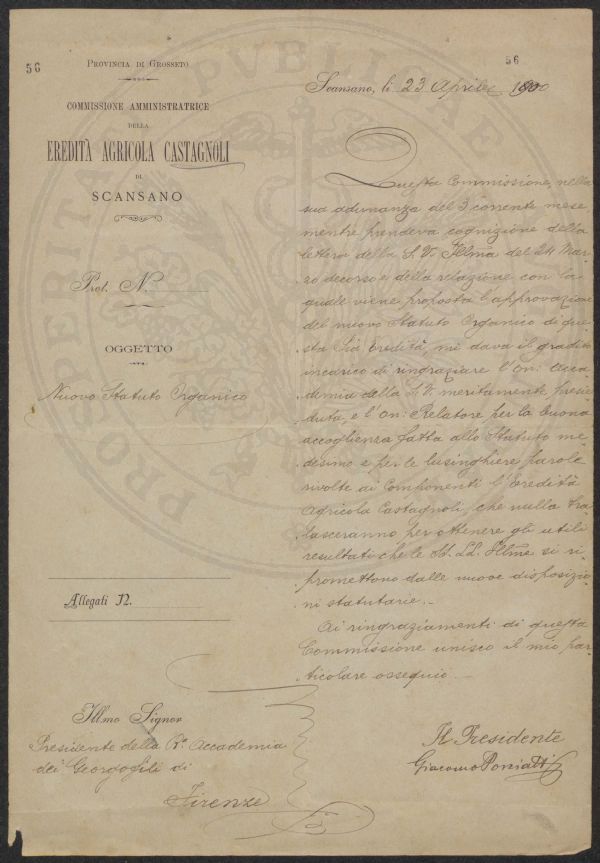 56
56
PROVINCIA DI GROSSETO
COMMISSIONE AMMINISTRATRICE
DELLA
EREDITÀ AGRICOLA CASTAGNOLI
DI
SCANSANO
Prot. N.
OGGETTO
Nuovo Statuto Organico
Allegati N.
Scansano, li 23 Aprile 1900
Questa Commissione, nella
sua adunanza del 3 corrente mese
mentre prendeva cognizione della
lettera della S. V. Illma del 24 Mar-
zo decorso e della relazione con la
quale viene proposta l'approvazione
del nuovo Statuto Organico di que-
sta Pia Eredità, mi dava il gradito
incarico di ringraziare l'On: Acca-
demia della S. V. meritamente presie-
duta, e l'On: Relatore per la buona
accoglienza fatta allo Statuto me-
desimo e per le lusinghiere parole
rivolte ai Componenti l'Eredità
Agricola Castagnoli, che nulla tra-
lasceranno per ottenere gli utili
resultati che le SS. LL. Illme si ri-
promettono dalle nuove disposizio-
ni statutarie.-
Ai ringraziamenti di questa
Commissione unisco il mio par-
ticolare ossequio.
Il Presidente
Giacomo Poniatti
Illmo Signor
Presidente della R. Accademia
dei Georgofili di
Firenze
PROSPERITATI PUBLICAE